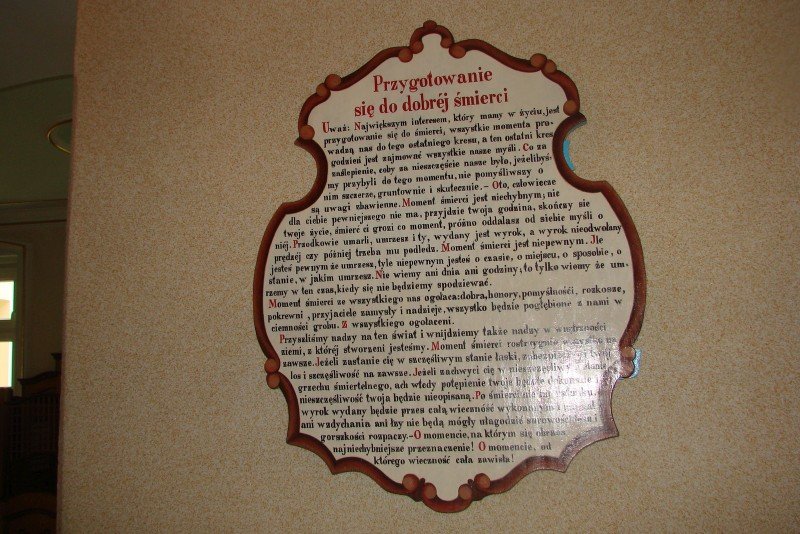 Przygotowanie
się do dobréj śmierci
Uważ: Największym interesem, który mamy w życiu, jest
przygotowanie się do śmierci, wszystkie momenta pro-
wadzą nas do tego ostatniego kresu, a ten ostatni kres
godzien jest zajmować wszystkie nasze myśli. Co za
zaślepienie, coby za nieszczęście nasze było, jeżelibyś-
my przybyli do tego momentu, nie pomyśliwszy o
nim szczerze, gruntownie i skutecznie.- Oto, człowiecze
są uwagi zbawienne. Moment śmierci jest niechybnym; nic
dla ciebie pewniejszego nie ma, przyjdzie twoja godzina, skończy się
twoje życie, śmierć ci grozi co moment, próżno oddalasz od siebie myśli o
niéj. Przodkowie umarli, umrzesz i ty, wydany jest wyrok, a wyrok nieodwołany
prędzéj czy później trzeba mu podledz. Moment śmierci jest niepewnym. Jle
jesteś pewnym że umrzesz, tyle niepewnym jesteś o czasie, o miejscu, o sposobie, o
stanie, w jakim umrzesz. Nie wiemy ani dnia ani godziny, to tylko wiemy że um-
rzemy w ten czas, kiedy się nie będziemy spodziewać.
Moment śmierci ze wszystkiego nas ogołaca: dobra, honory, pomyślności, rozkosze,
pokrewni, przyjaciele zamysły i nadzieje, wszystko będzie pogłębione z nami w
ciemności grobu. Z wszystkiego ogołoceni.
Przyszliśmy nadzy na ten świat i wnijdziemy także nadzy w wnętrzności
ziemi, z któréj stworzeni jesteśmy. Moment śmierci rozstrzygnie wszystko na
zawsze. Jeżeli zastanie cię w szczęśliwym stanie łaski, zabezpieczy twój
los i szczęśliwość na zawsze. Jeżeli zachwyci cię w nieszczęśliwym stanie
grzechu śmiertelnego, ach wtedy potępienie twoje będzie
nieszczęśliwość twoja będzie nieopisaną. Po śmierci nie
wyrok wydany będzie przez całą wieczność wykonanym i
ani wzdychania ani łzy nie będą mógły ułagodzić surowości i
gorszkości rozpaczy.- O momencie, na którym się obraca
najniechybniejsze przeznaczenie! O momencie, od
którego wieczność cała zawisła!